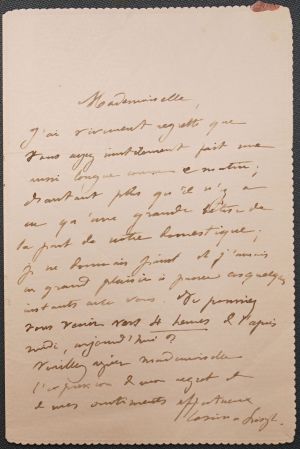 Mademoiselle,
J'ai vivement regretté que
vous ayez inutilement fait une
aussi longue course ce matin;
d'autant plus qu'il n'y a
eu qu'une grande bêtise de
la part de notre domestique;
Je ne dormais point et j'aurais
eu grand plaisir à passer quelques
instants avec vous. Ne pourriez
vous venir vers 4 heures de l'après
midi, aujourd'hui?
Veuillez agréer mademoiselle
l'expression de mon regret et
de mes sentiments affectueux